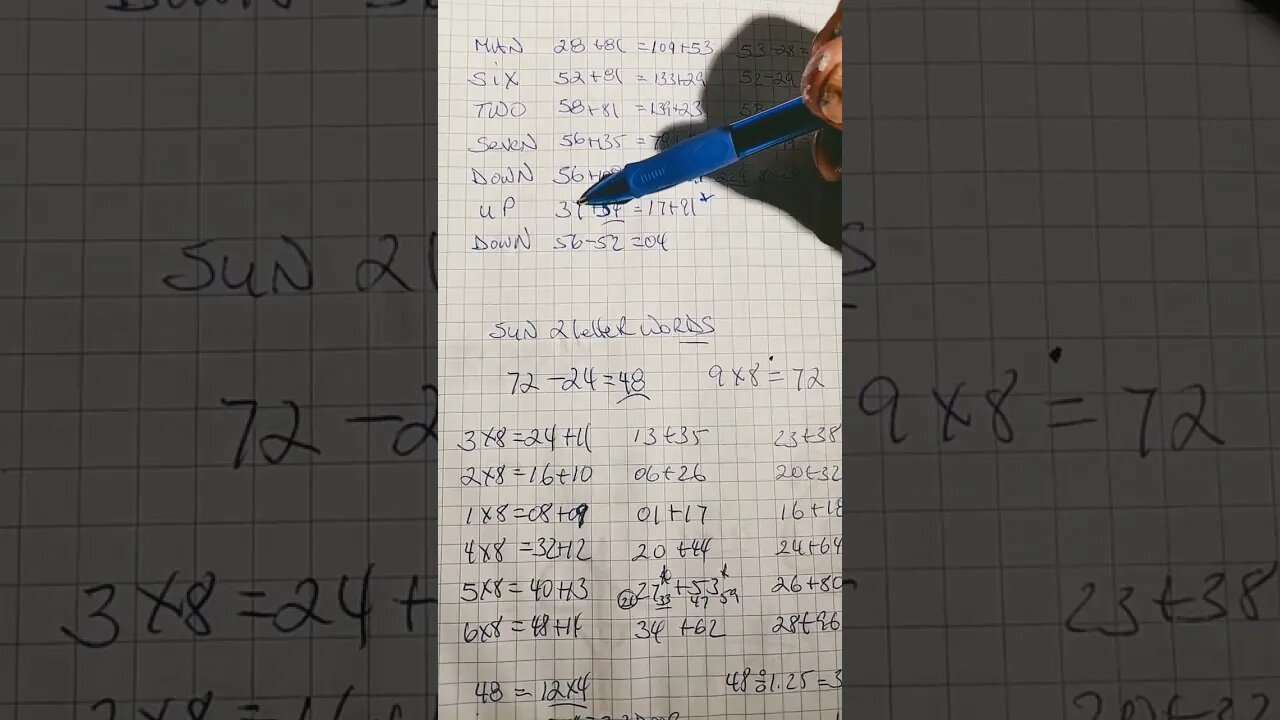 MAN 28+81 =109+53 53-28=
SIX 52+81 =133+29 52-29
TWO 58+81 =139+23 58
SEVEN 56+35
DOWN 56
UP =17+81*
DOWN 56-52=04
SUN 2 letter WORDS
72 -24=48 9x8=72
3x8=24+11 13+35 23+38
2x8=16+10 06+26 20+32
1x8=08+09 01+17 16+18
4x8=32+12 20 +44 24+64
5x8=40+13 27*+53* 26+80
33 47 59
6x8=48+14 34 +62 28+96
48 = 12x4 48÷1.25=3